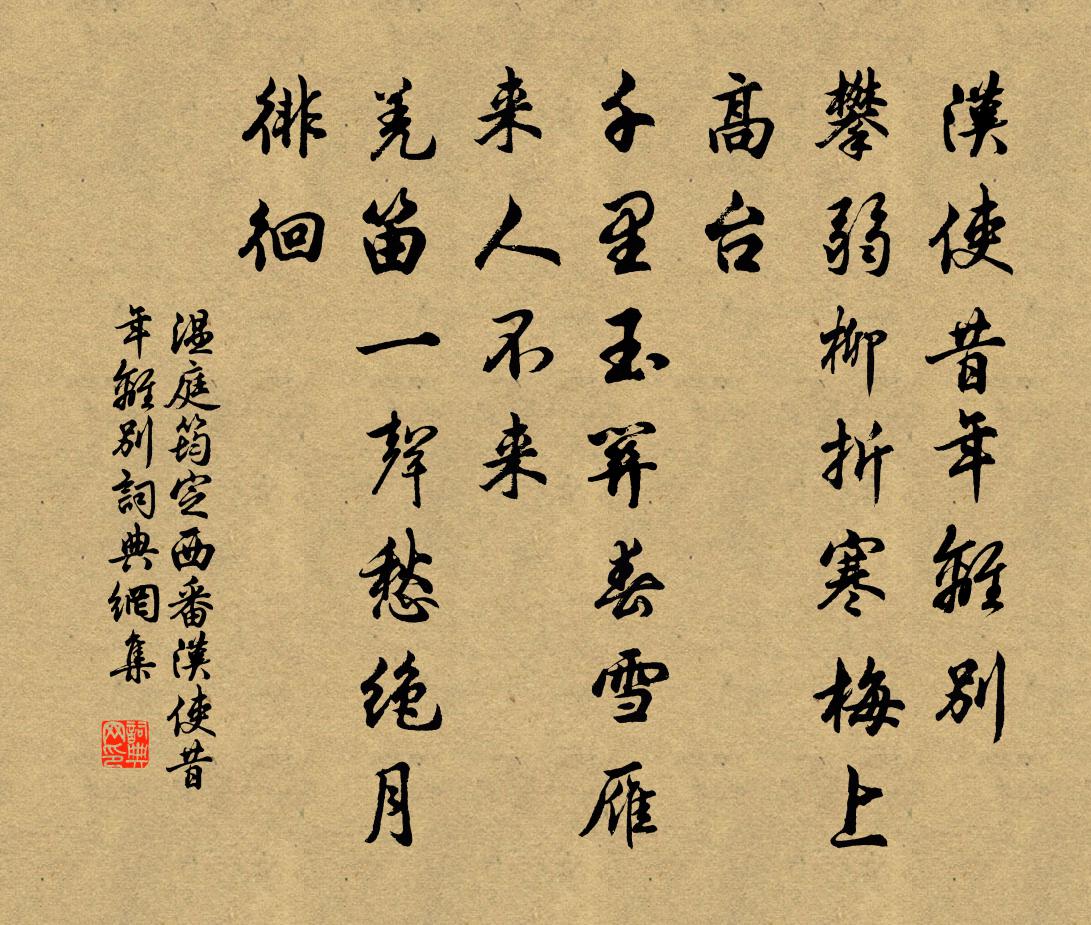 漢使昔年離別
攀弱柳折寒梅上
高台
千里玉關春雪雁
来人不来
羌笛一聲愁绝月
徘徊
温庭筠定西番漢使昔
年離别詞典網集
詞典网印